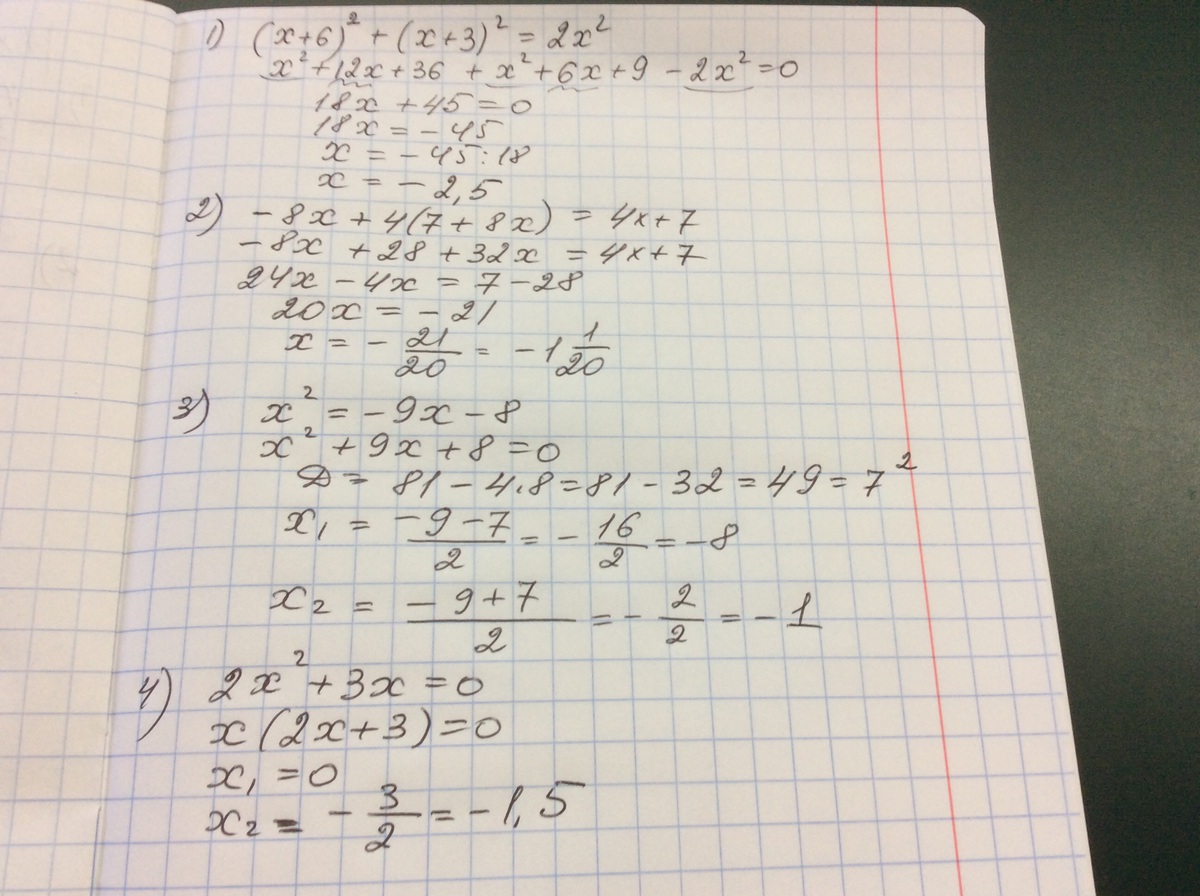 1) (x+6)² + (x+3)² = 2x²
x² + 12x + 36 + x² + 6x + 9 - 2x² = 0
18x + 45 = 0
18x = - 45
x = - 45 : 18
x = - 2,5
2) - 8x + 4(7 + 8x) = 4x + 7
- 8x + 28 + 32x = 4x + 7
24x - 4x = 7 - 28
20x = - 21
x = - 21/20 = - 1 1/20
3) x² = - 9x - 8
x² + 9x + 8 = 0
D = 81 - 4·8 = 81 - 32 = 49 = 7²
x₁ = (-9 - 7)/2 = - 16/2 = - 8
x₂ = (-9 + 7)/2 = - 2/2 = - 1
4) 2x² + 3x = 0
x(2x + 3) = 0
x₁ = 0
x₂ = - 3/2 = - 1,5